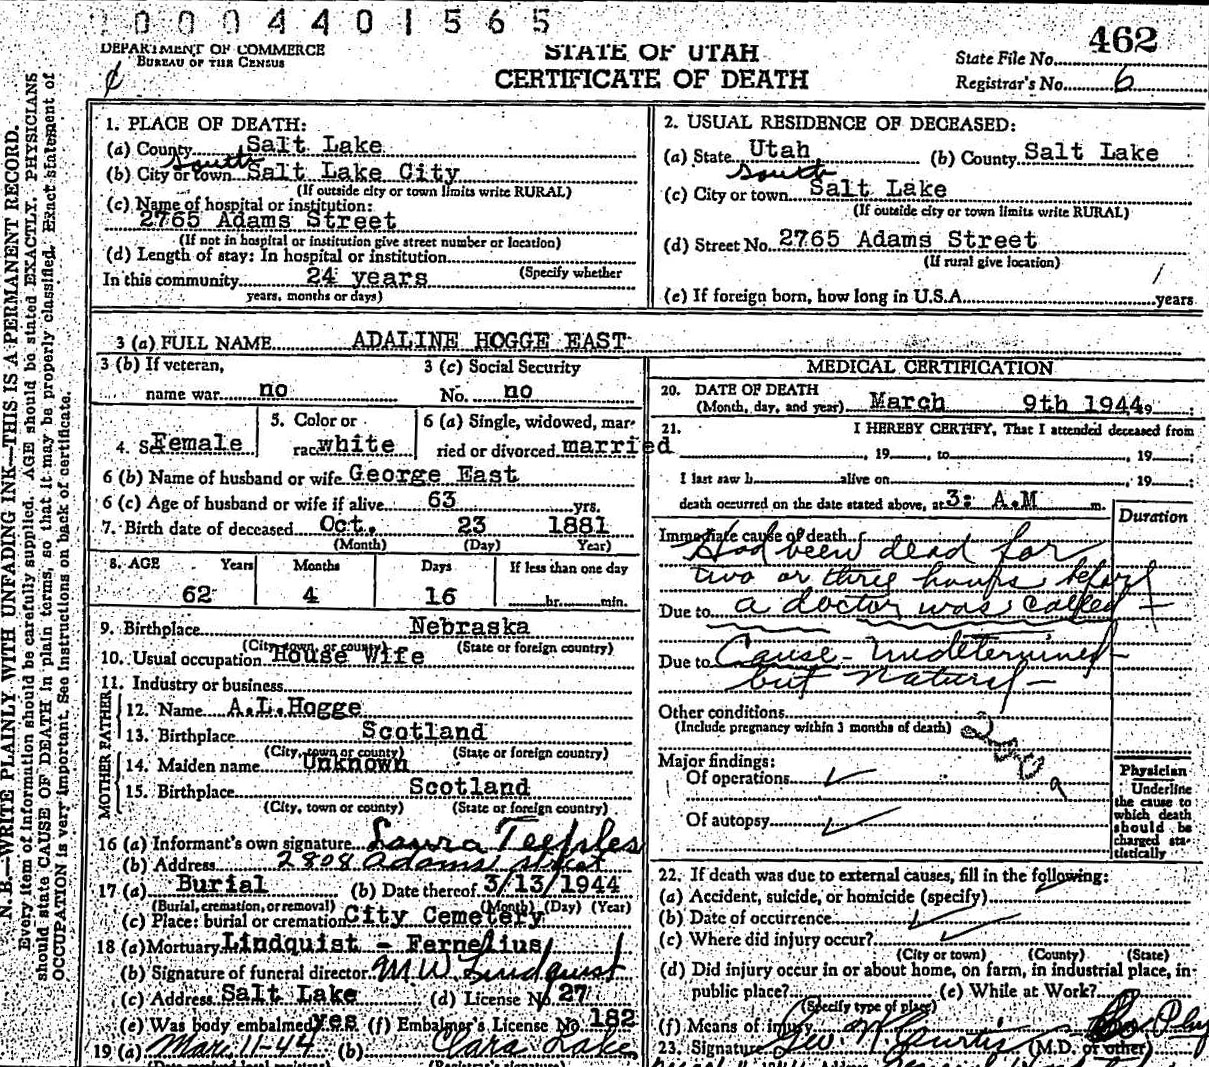 00004401565
DEPARTMENT OF COMMERCE
BUREAU OF THE CENSUS
STATE OF UTAH
CERTIFICATE OF DEATH
462
State File No.
Registrar's No. 6
N. B.—WRITE PLAINLY WITH UNFADING INK—THIS IS A PERMANENT RECORD.
Every item of information should be carefully supplied. AGE should be stated EXACTLY. PHYSICIANS
should state CAUSE OF DEATH in plain terms, so that it may be properly classified. Exact statement of
OCCUPATION is very important. See instructions on back of certificate.
1. PLACE OF DEATH:
(a) County Salt Lake
South
(b) City or town Salt Lake City
(If outside city or town limits write RURAL)
(c) Name of hospital or institution:
2765 Adams Street
(If not in hospital or institution give street number or location)
(d) Length of stay: In hospital or institution
(Specify whether
In this community 24 years
years, months or days)
2. USUAL RESIDENCE OF DECEASED:
(a) State Utah (b) County Salt Lake
South
(c) City or town Salt Lake
(If outside city or town limits write RURAL)
(d) Street No. 2765 Adams Street
(If rural give location)
(e) If foreign born, how long in U.S.A. years
3 (a) FULL NAME ADALINE HOGGE EAST
3 (b) If veteran, name war no
3 (c) Social Security No. no
4. Sex Female
5. Color or race white
6 (a) Single, widowed, married or divorced married
6 (b) Name of husband or wife George East
6 (c) Age of husband or wife if alive 63 yrs.
7. Birth date of deceased Oct. 23 1881
(Month) (Day) Year)
8. AGE Years Months Days If less than one day
62 4 16 hr. min.
9. Birthplace Nebraska
(City, town, or county) (State or foreign country)
10. Usual occupation House Wife
11. Industry or business
FATHER
12. Name A.L.Hogge
13. Birthplace Scotland
(City, town or county) (State or foreign country)
MOTHER
14. Maiden name Unknown
15. Birthplace Scotland
(City, town or county) (State or foreign country)
16 (a) Informant's own signature Laura Teeples
(b) Address 2808 Adams street
17 (a) Burial (b) Date thereof 3/13/1944
(Burial, cremation, or removal) (Month) (Day) (Year)
(c) Place: burial or cremation City Cemetery
18 (a) Mortuary Lindquist - Fernelius
(b) Signature of funeral director M W Lindquist
(c) Address Salt Lake (d) License No. 27
(e) Was body embalmed yes (f) Embalmer's License No. 182
19 (a) Mar. 11-44 (b) Clara Lake
(Date received local registrar) (Registrar's signature)
MEDICAL CERTIFICATION
20. DATE OF DEATH
(Month, day, and year) March 9th 1944 9
21. I HEREBY CERTIFY, That I attended deceased from
, 19 , to , 19 ;
I last saw h alive on , 19 ;
death occurred on the date stated above, at 3: A.M m.
Duration
Immediate cause of death
Had been dead for
two or three hours before
Due to a doctor was called -
Due to Cause - Undetermined -
but Natural -
Other conditions
(Include pregnancy within 3 months of death)
Major findings:
Of operations
Of autopsy
Physician
Underline
the cause to
which death
should be
charged statistically
22. If death was due to external causes, fill in the following:
(a) Accident, suicide, or homicide (specify)
(b) Date of occurrence
(c) Where did injury occur?
(City or town) (County) (State)
(d) Did injury occur in or about home, on farm, in industrial place, in
public place? (e) While at Work?
(Specify type of place)
(f) Means of injury
23. Signature Geo. N. Curtis (M.D. or other)